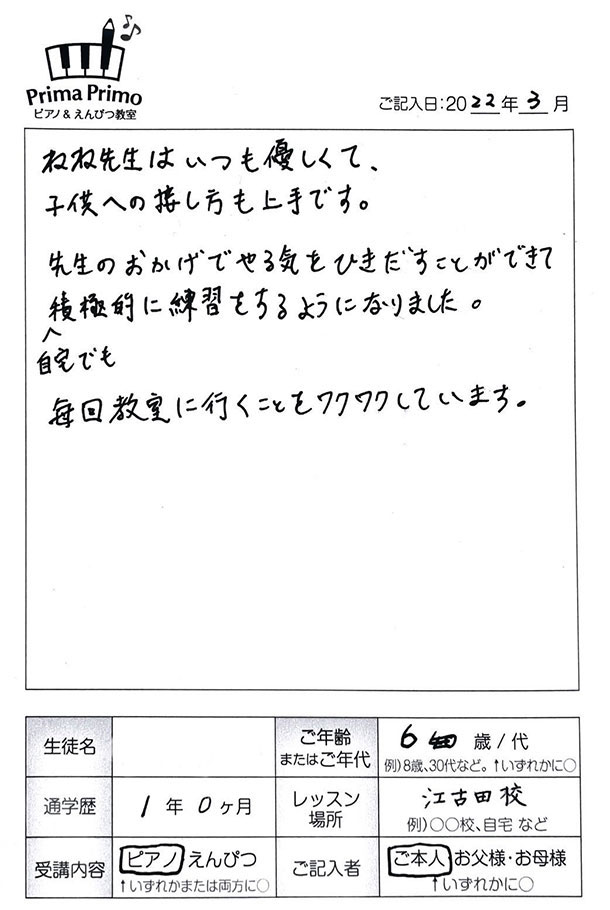 Prima Primo
ピアノ&えんぴつ教室
ご記入日:2022年3月
ねね先生はいつも優しくて、
子供への接し方も上手です。
先生のおかげでやる気をひきだすことができて
積極的に練習をするようになりました。
自宅でも
毎回教室に行くことをワクワクしています。
生徒名
ご年齢
またはご年代
6 歳/代
例)8歳、30代など。↑いずれかに○
通学歴
1年0ヶ月
レッスン
場所
江古田校
例)○○校、自宅 など
受講内容
ピアノ えんぴつ
↑いずれかまたは両方に○
ご記入者
ご本人 お父様・お母様
↑いずれかに○